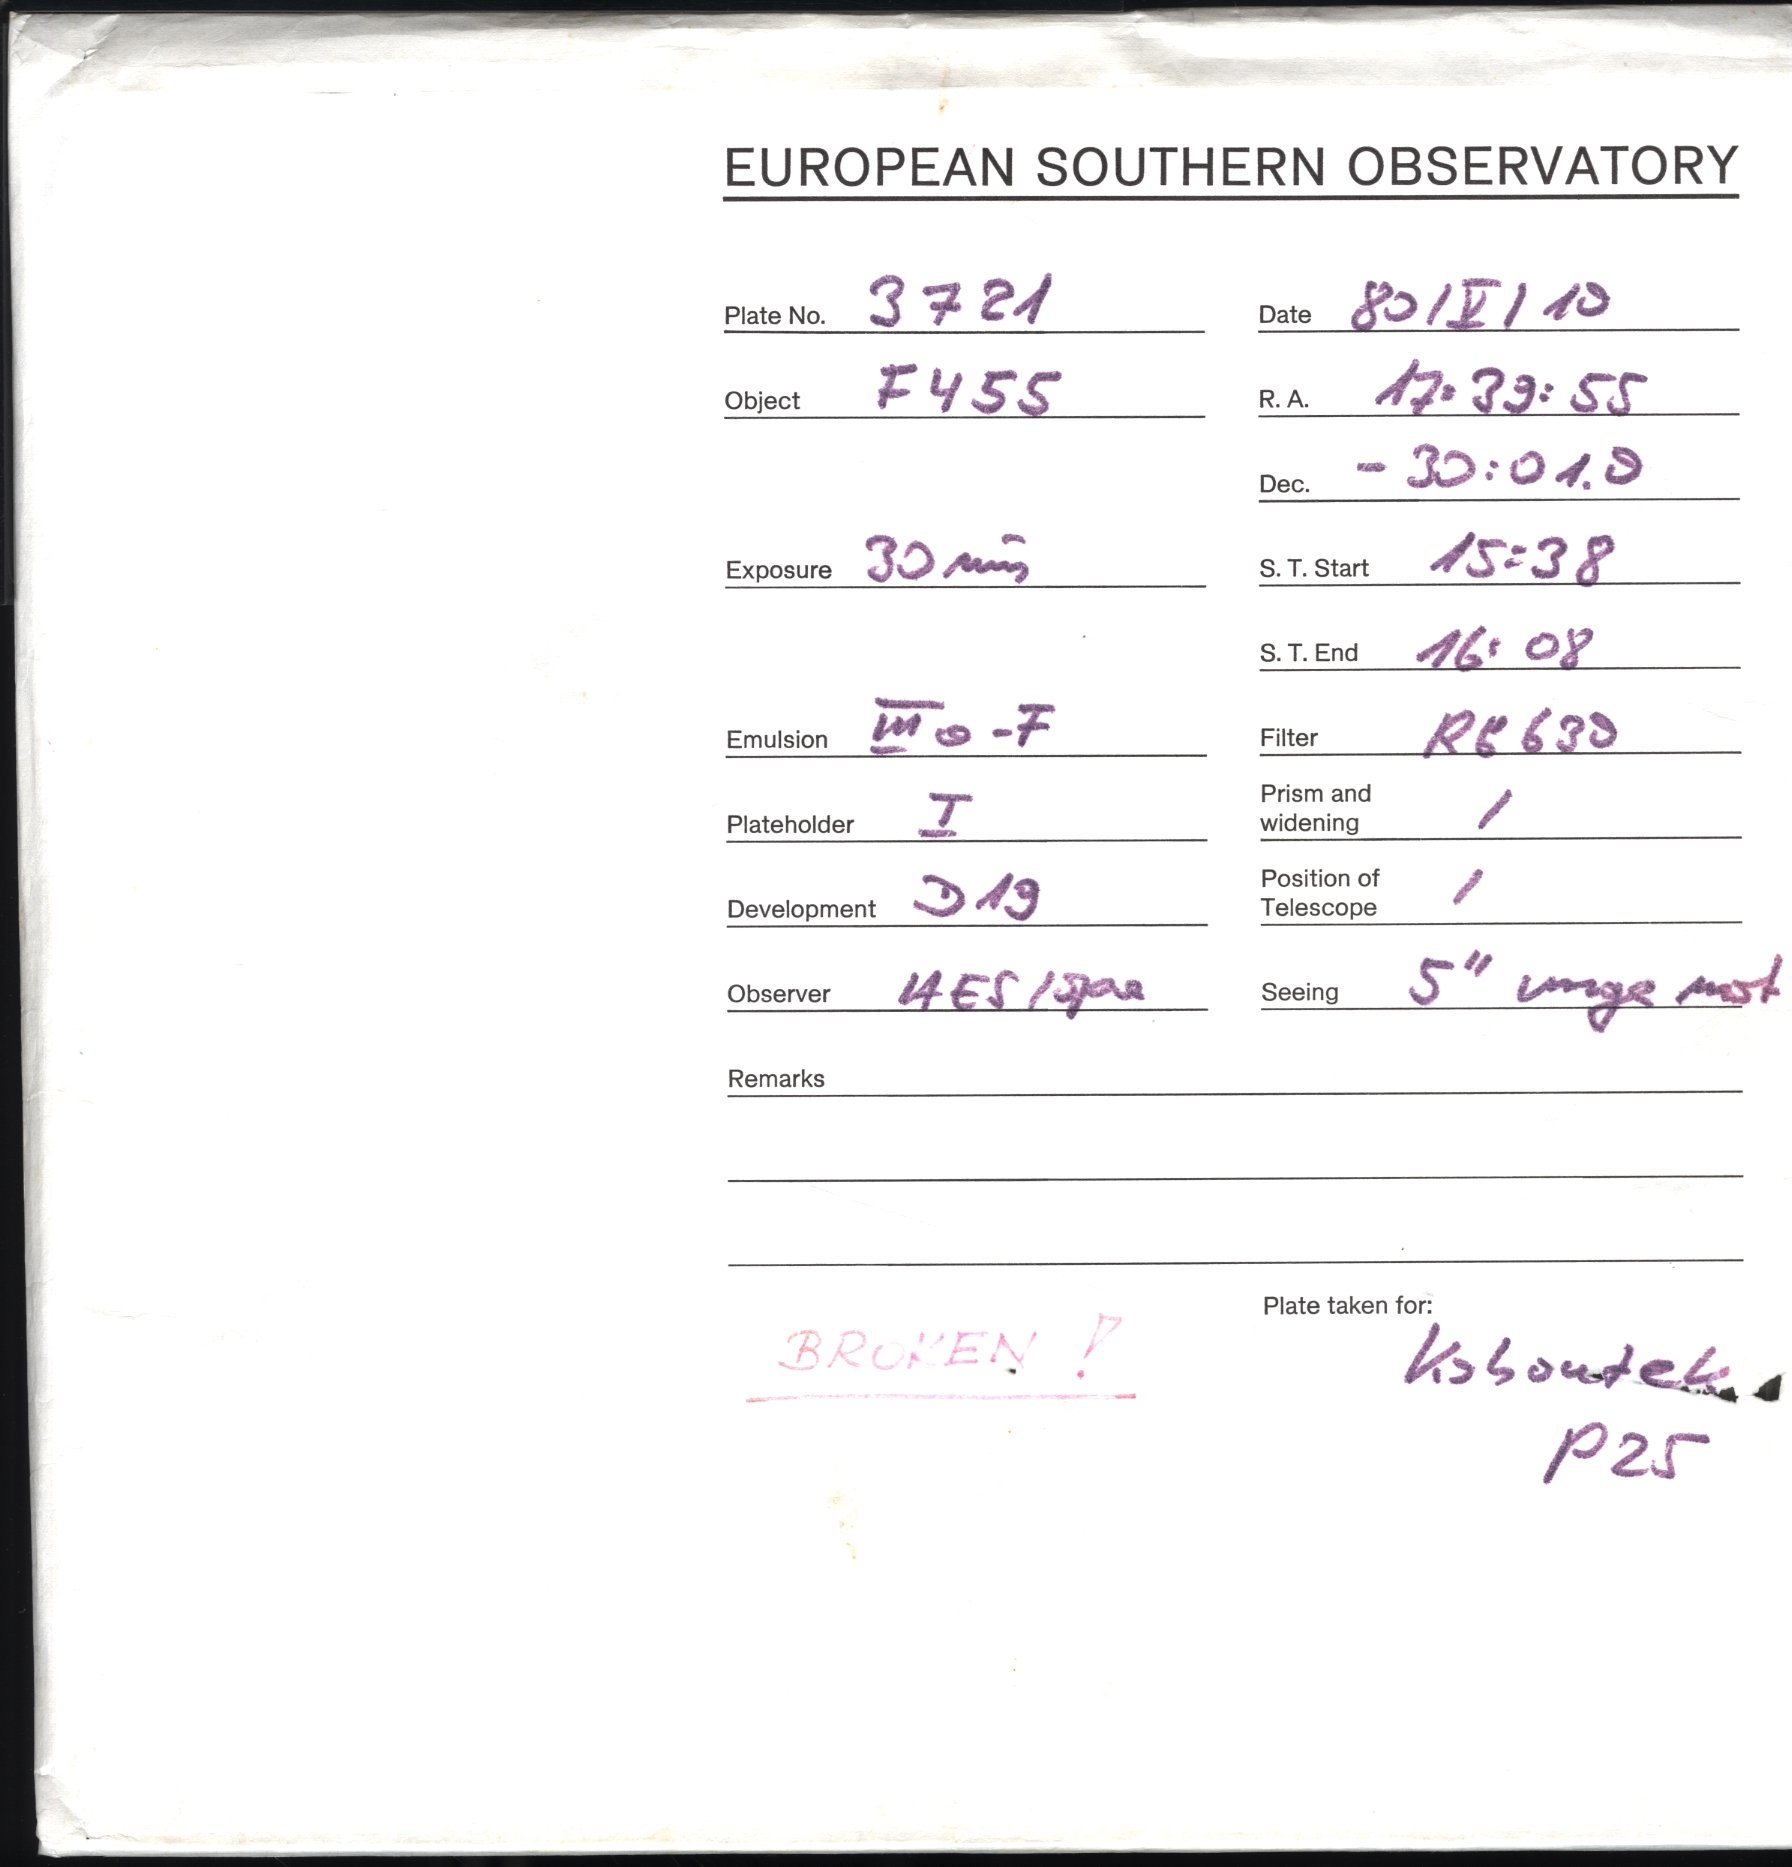 EUROPEAN SOUTHERN OBSERVATORY
Plate No. 3721 Date 80/V/10
Object F455 R. A. 17:39:55
Dec. -30:01.0
Exposure 30 min S. T. Start 15:38
S. T. End 16:08
Emulsion IIIa-F Filter RG630
Plateholder I Prism and widening /
Development D19 Position of Telescope /
Observer HES / Seeing 5"
Remarks
Plate taken for:
BROKEN!
Kohoutek
P25